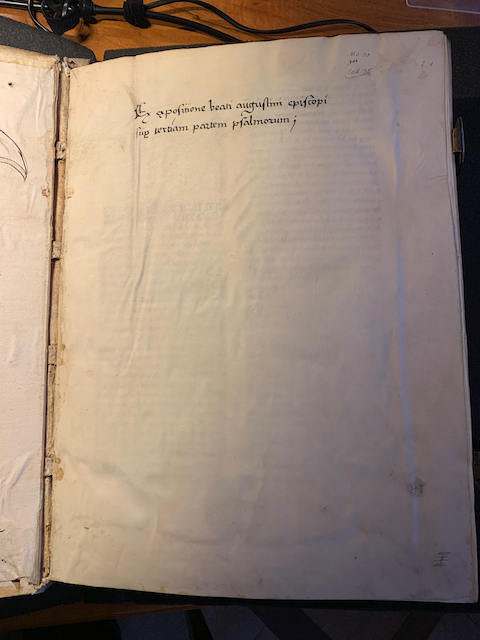 Ex expositione beati augustini episcopi
sup tertiam partem psalmorum